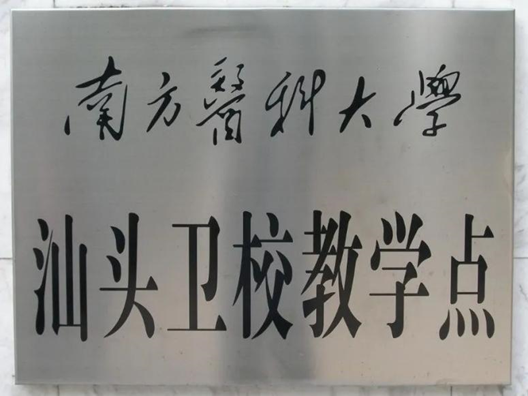 南方醫科大學
汕头卫校教学点